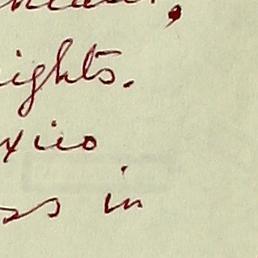 ights.
xico
ss in